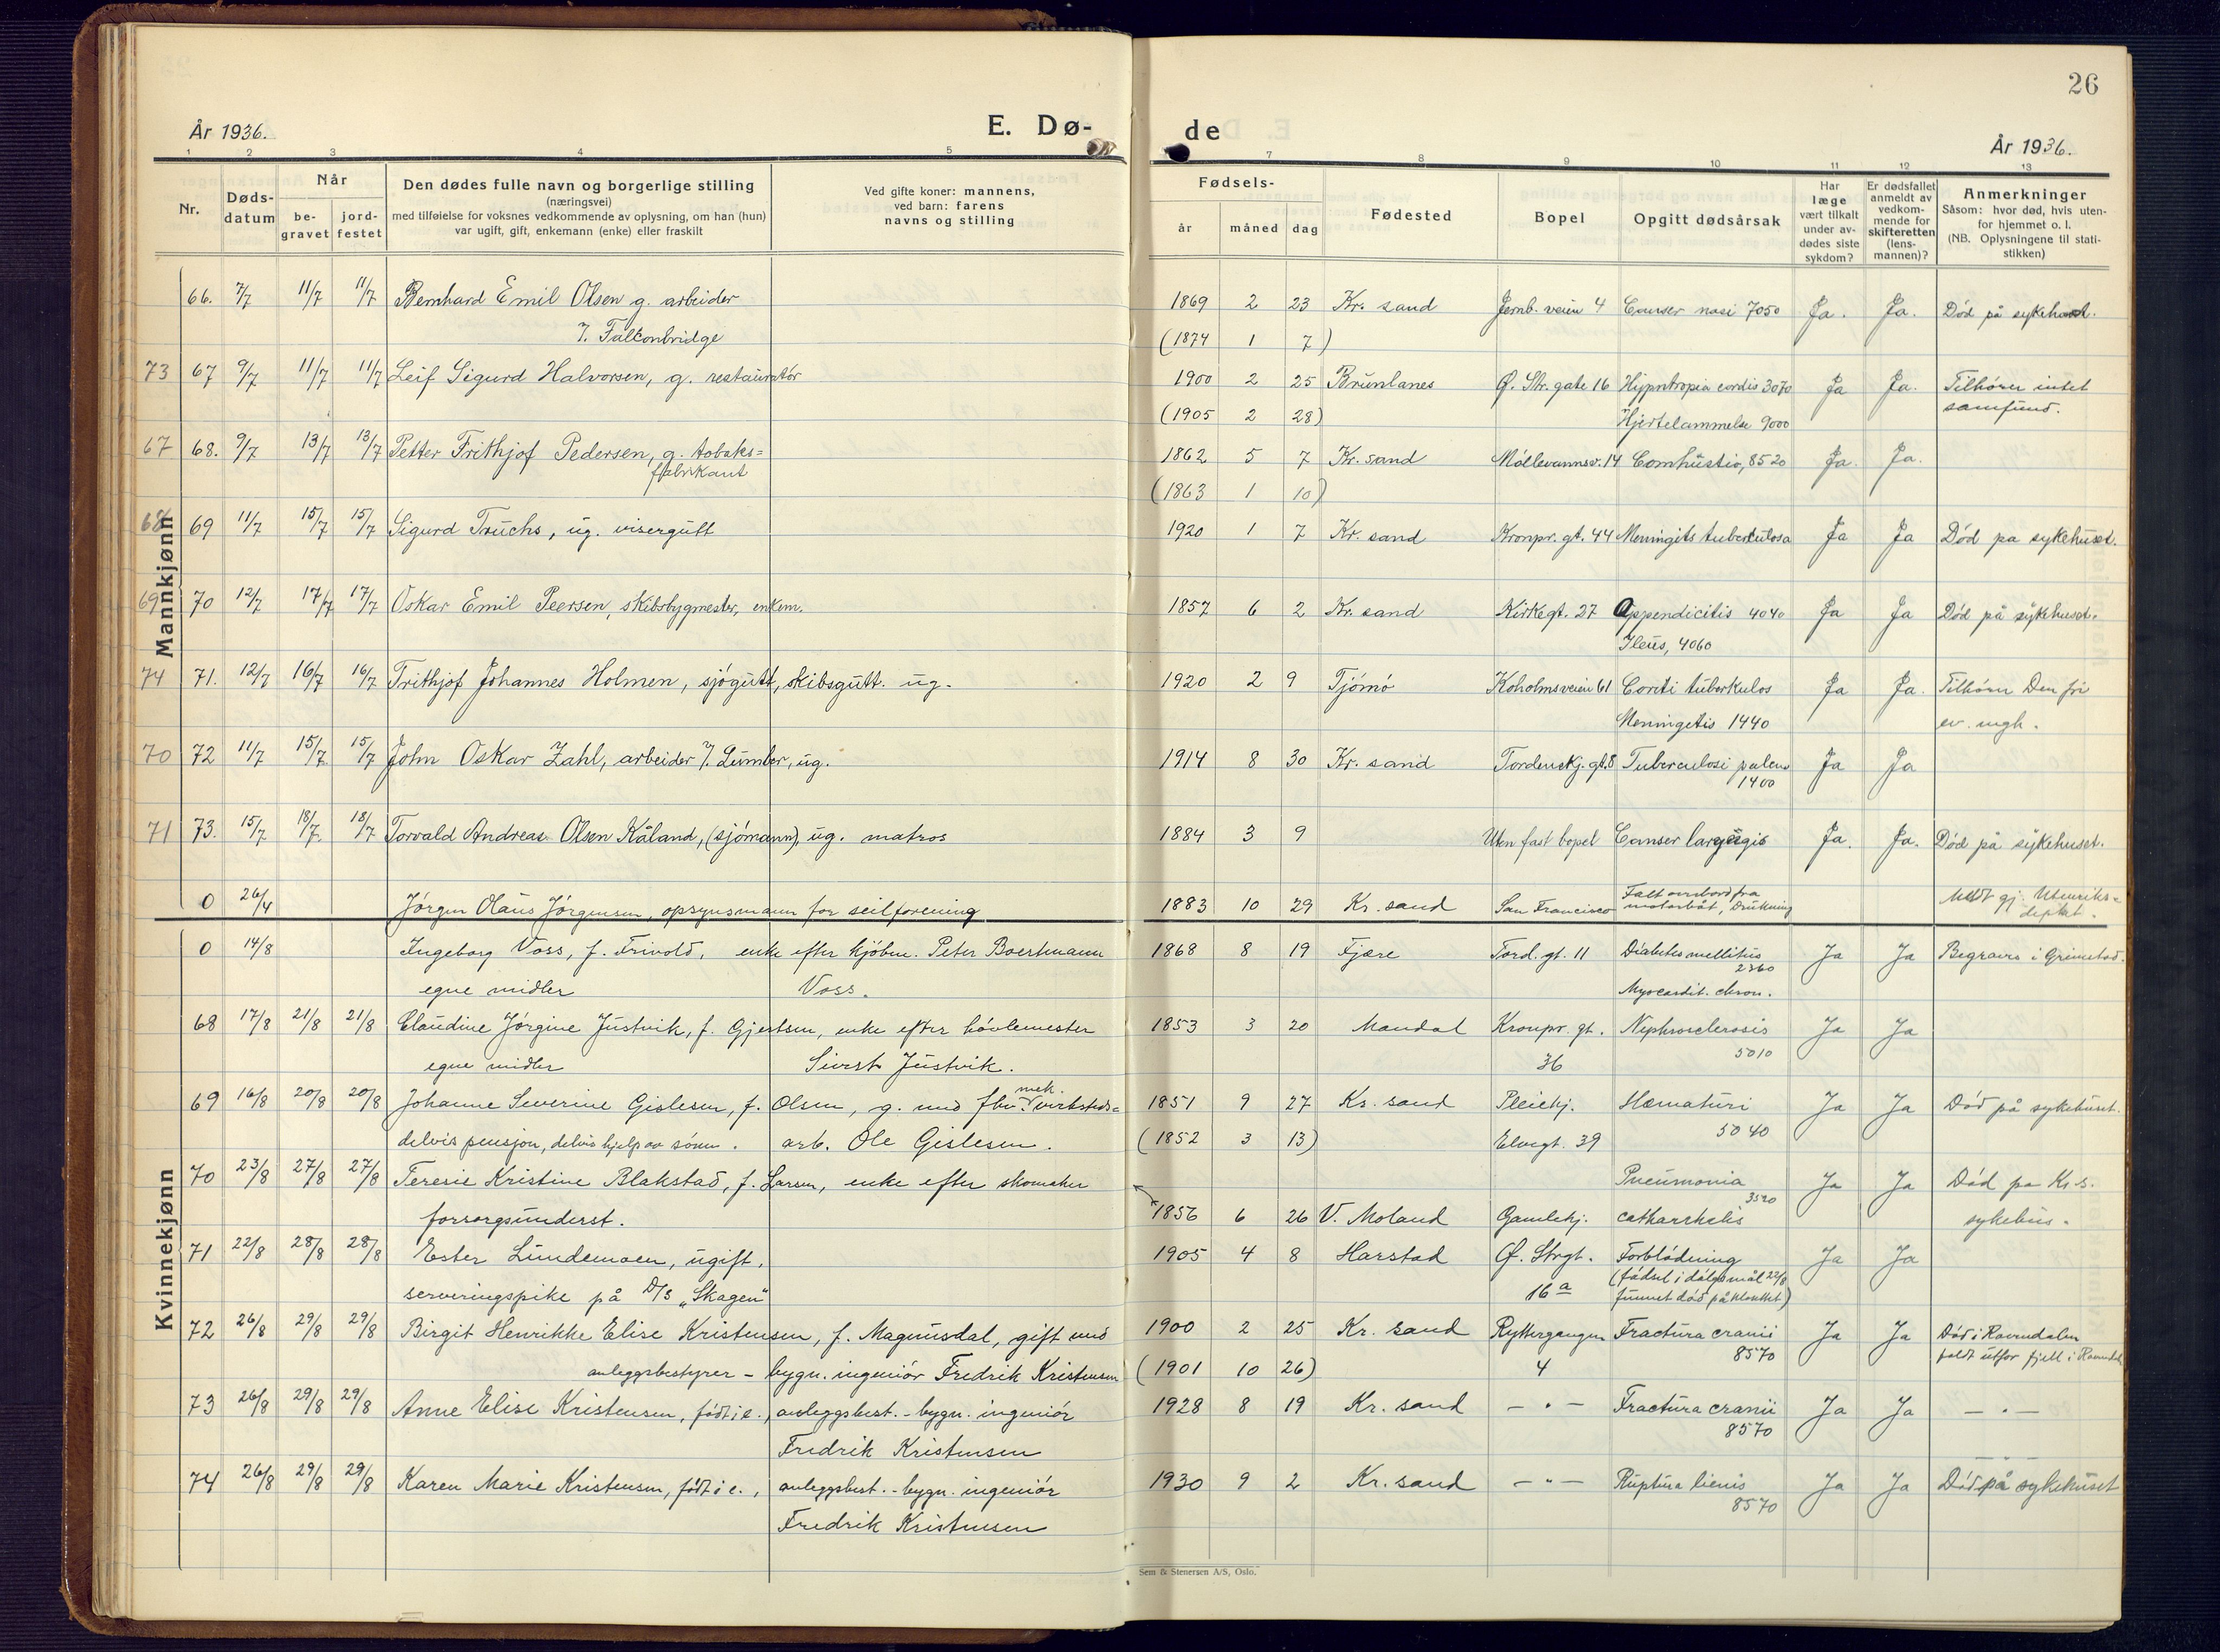 26
År 1936.
E. Dø-
de
År 1936.
1 2 3 4 5 7 8 9 10 11 12 13
Nr.
Døds-
datum
Når
be-
gravet
jord-
festet
Den dødes fulle navn og borgerlige stilling
(næringsvei)
med tilføielse for voksnes vedkommende av oplysning, om han (hun)
var ugift, gift, enkemann (enke) eller fraskilt
Ved gifte koner: mannens,
ved barn: farens
navns og stilling
Fødsels-
år måned dag
Fødested
Bopel
Opgitt dødsårsak
Har
læge
vært tilkalt
under av-
dødes siste
sykdom?
Er dødsfallet
anmeldt av
vedkom-
mende for
skifteretten
(lens-
mannen)?
Anmerkninger
Såsom: hvor død, hvis uten-
for hjemmet o. l.
(NB. Oplysningene til stati-
stikken)
Mannkjønn
66. 7/7 11/7 11/7 Bernhard Emil Olsen g. arbeider 1869 2 23 Kr. sand Jernb. veien 4 Canser nasi 7050 Ja. Ja. Død på sykehuset.
7. Falconbridge (1874 1 7)
73 67 9/7 11/7 11/7 Leif Sigurd Halvorsen, g. restauratør 1900 2 25 Brunlanes Ø. Str. gate 16 Hypntropia cordis 3070 Ja Ja. Tilhører intet
(1905 2 28) Hjertelammelse 9000 samfund.
67 68. 9/7 13/7 13/7 Petter Frithjof Pedersen, g. tobaks= 1862 5 7 Kr. sand Møllevannsv. 14 Combustio, 8520 Ja. Ja.
fabrikant (1863 1 10)
68 69 11/7 15/7 15/7 Sigurd Truchs, ug. visergutt 1920 1 7 Kr. sand Kronpr. gt. 44 Meningits tuberculosa Ja Ja Død på sykehuset.
69 70 12/7 17/7 17/7 Oskar Emil Peersen, skibsbygmester, enkem. 1857 6 2 Kr. sand Kirkegt. 27 Appendicitis 4040 Ja Ja Død på sykehuset.
Ileus, 4060
74 71. 12/7 16/7 16/7 Frithjof Johannes Holmen, sjøgutt, skibsgutt. ug. 1920 2 9 Tjømø Koholmsveien 61 Coreti tuberkulos Ja Ja. Tilhører Den fri
Meningetis 1440 ev. mgh.
70 72 11/7 15/7 15/7 John Oskar Zahl, arbeider 7. Lumber, ug. 1914 8 30 Kr. sand Tordenskj. gt. 8 Tuberculosi pulens Ja Ja
1400
71 73. 15/7 18/7 18/7 Torvald Andreas Olsen Kåland, (sjømann), ug. matros 1884 3 9 Uten fast bopel Canser laryngis Ja. Ja. Død på sykehuset.
0 26/4 Jørgen Olaus Jørgensen, opsynsmann for seilforening 1883 10 29 Kr. sand San Francisco Falt overbord fra Meldt gj. Utenriks=
motorbåt, Drukning deptet.
Kvinnekjønn
0 14/8 Ingeborg Voss, f. Frivold, enke efter kjøbm. Peter Boertmann 1868 8 19 Fjære Tord. gt. 11 Diabetes mellitus Ja Ja Begraves i Grimstad.
2360
egne midler Voss. Myocardit. chron.
68 17/8 21/8 21/8 Claudine Jørgine Justvik, f. Gjertsen, enke efter høvlemester 1853 3 20 Mandal Kronpr. gt. Nephrosclerosis Ja Ja
egne midler Sivert Justvik. 36 5010
69 16/8 20/8 20/8 Johanne Severine Gislesen, f. Olsen, g. med fhv. mek. verksteds= 1851 9 27 Kr. sand Pleiehj. Hæmaturi Ja Ja Død på sykehuset.
delvis pensjon, delvis hjelp av sønn. arb. Ole Gislesen. (1852 3 13) Elvegt. 39 5040
70 23/8 27/8 27/8 Teresie Kristine Blakstad, f. Larsen, enke efter skomaker Pneumonia Ja Ja Død på Kr.s.
forsorgsunderst. 1856 6 26 V. Moland Gamlehj. catharrhalis 3520 sykehus.
71 22/8 28/8 28/8 Ester Lundemoen, ugift, 1905 4 8 Harstad Ø. Strgt. Forblødning Ja Ja
serveringspike på D/S "Skagen" 16 a (fødsel i dølgsmål 22/8
funnet død på klosettet)
72 26/8 29/8 29/8 Birgit Henrikke Elise Kristensen, f. Magnusdal, gift med 1900 2 25 Kr. sand Ryttergangen Fractura cranii Ja Ja Død i Ravnedalen
anleggsbestyrer - bygn. ingeniør Fredrik Kristensen (1901 10 26) 4 8570 faldt utfor fjell i Ravnedal
73 26/8 29/8 29/8 Anne Elise Kristensen, født i e., anleggsbest. - bygn. ingeniør 1928 8 19 Kr. sand - " - Fractura cranii Ja Ja - " -
Fredrik Kristensen 8570
74 26/8 29/8 29/8 Karen Marie Kristensen, født i e., anleggsbest. - bygn. ingeniør 1930 9 2 Kr. sand - " - Ruptura lienis Ja Ja Død på sykehuset
Fredrik Kristensen 8570
Sem & Stenersen A/S, Oslo.